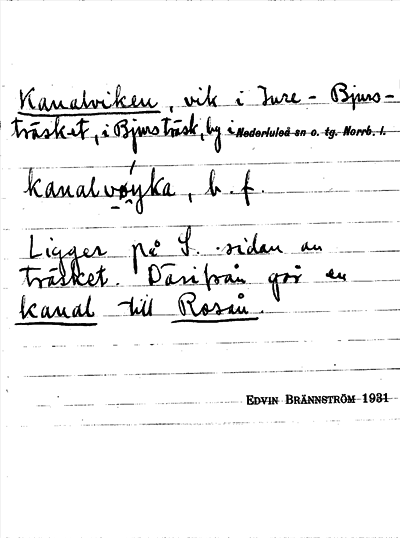 Kanalviken, vik i Ture-Bjurs-
träsket, i Bjursträsk, by i Nederluleå sn o. tg. Norrb. l.
kanalvøyka, b. f.
Ligger på S. sidan av
träsket. Därifrån går en
kanal till Rosån.
EDVIN BRÄNNSTRÖM 1931